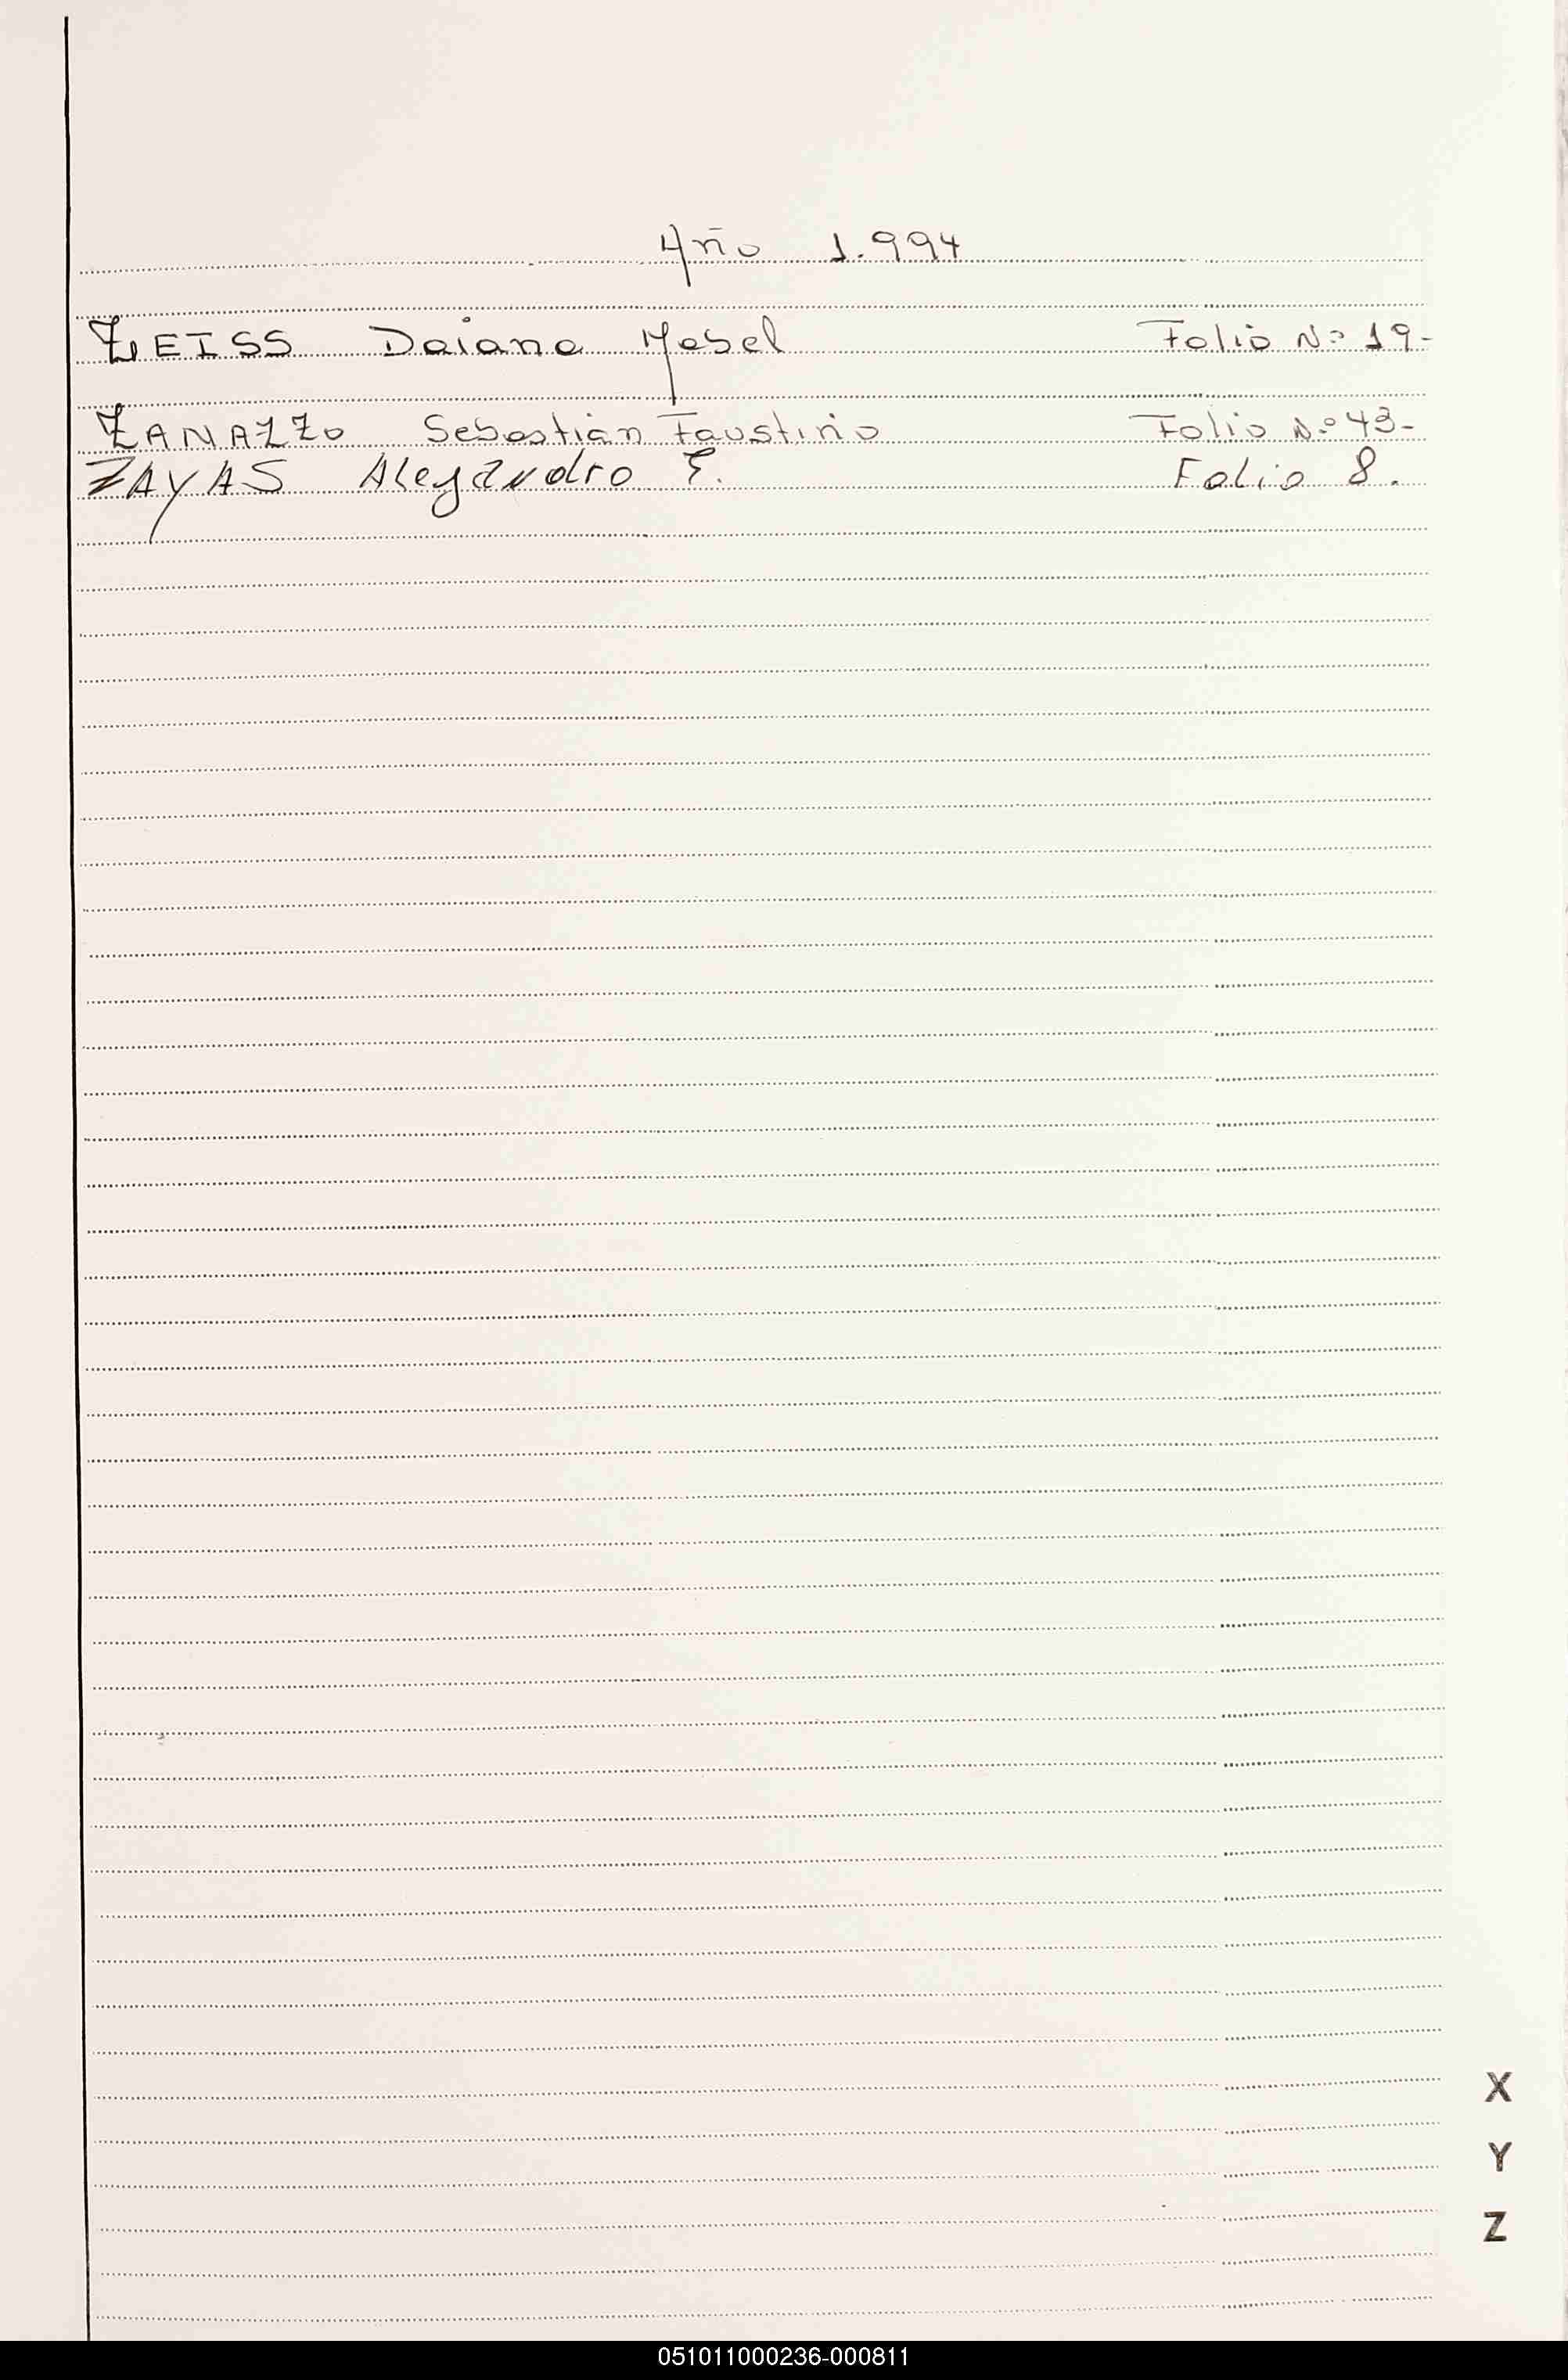 Año 1.994
ZEISS Daiana Mabel Folio Nº 19-
ZANAZZO Sebastián Faustino Folio Nº 43-
ZAYAS Alejandro E. Folio 8.
X
Y
Z
051011000236-000811